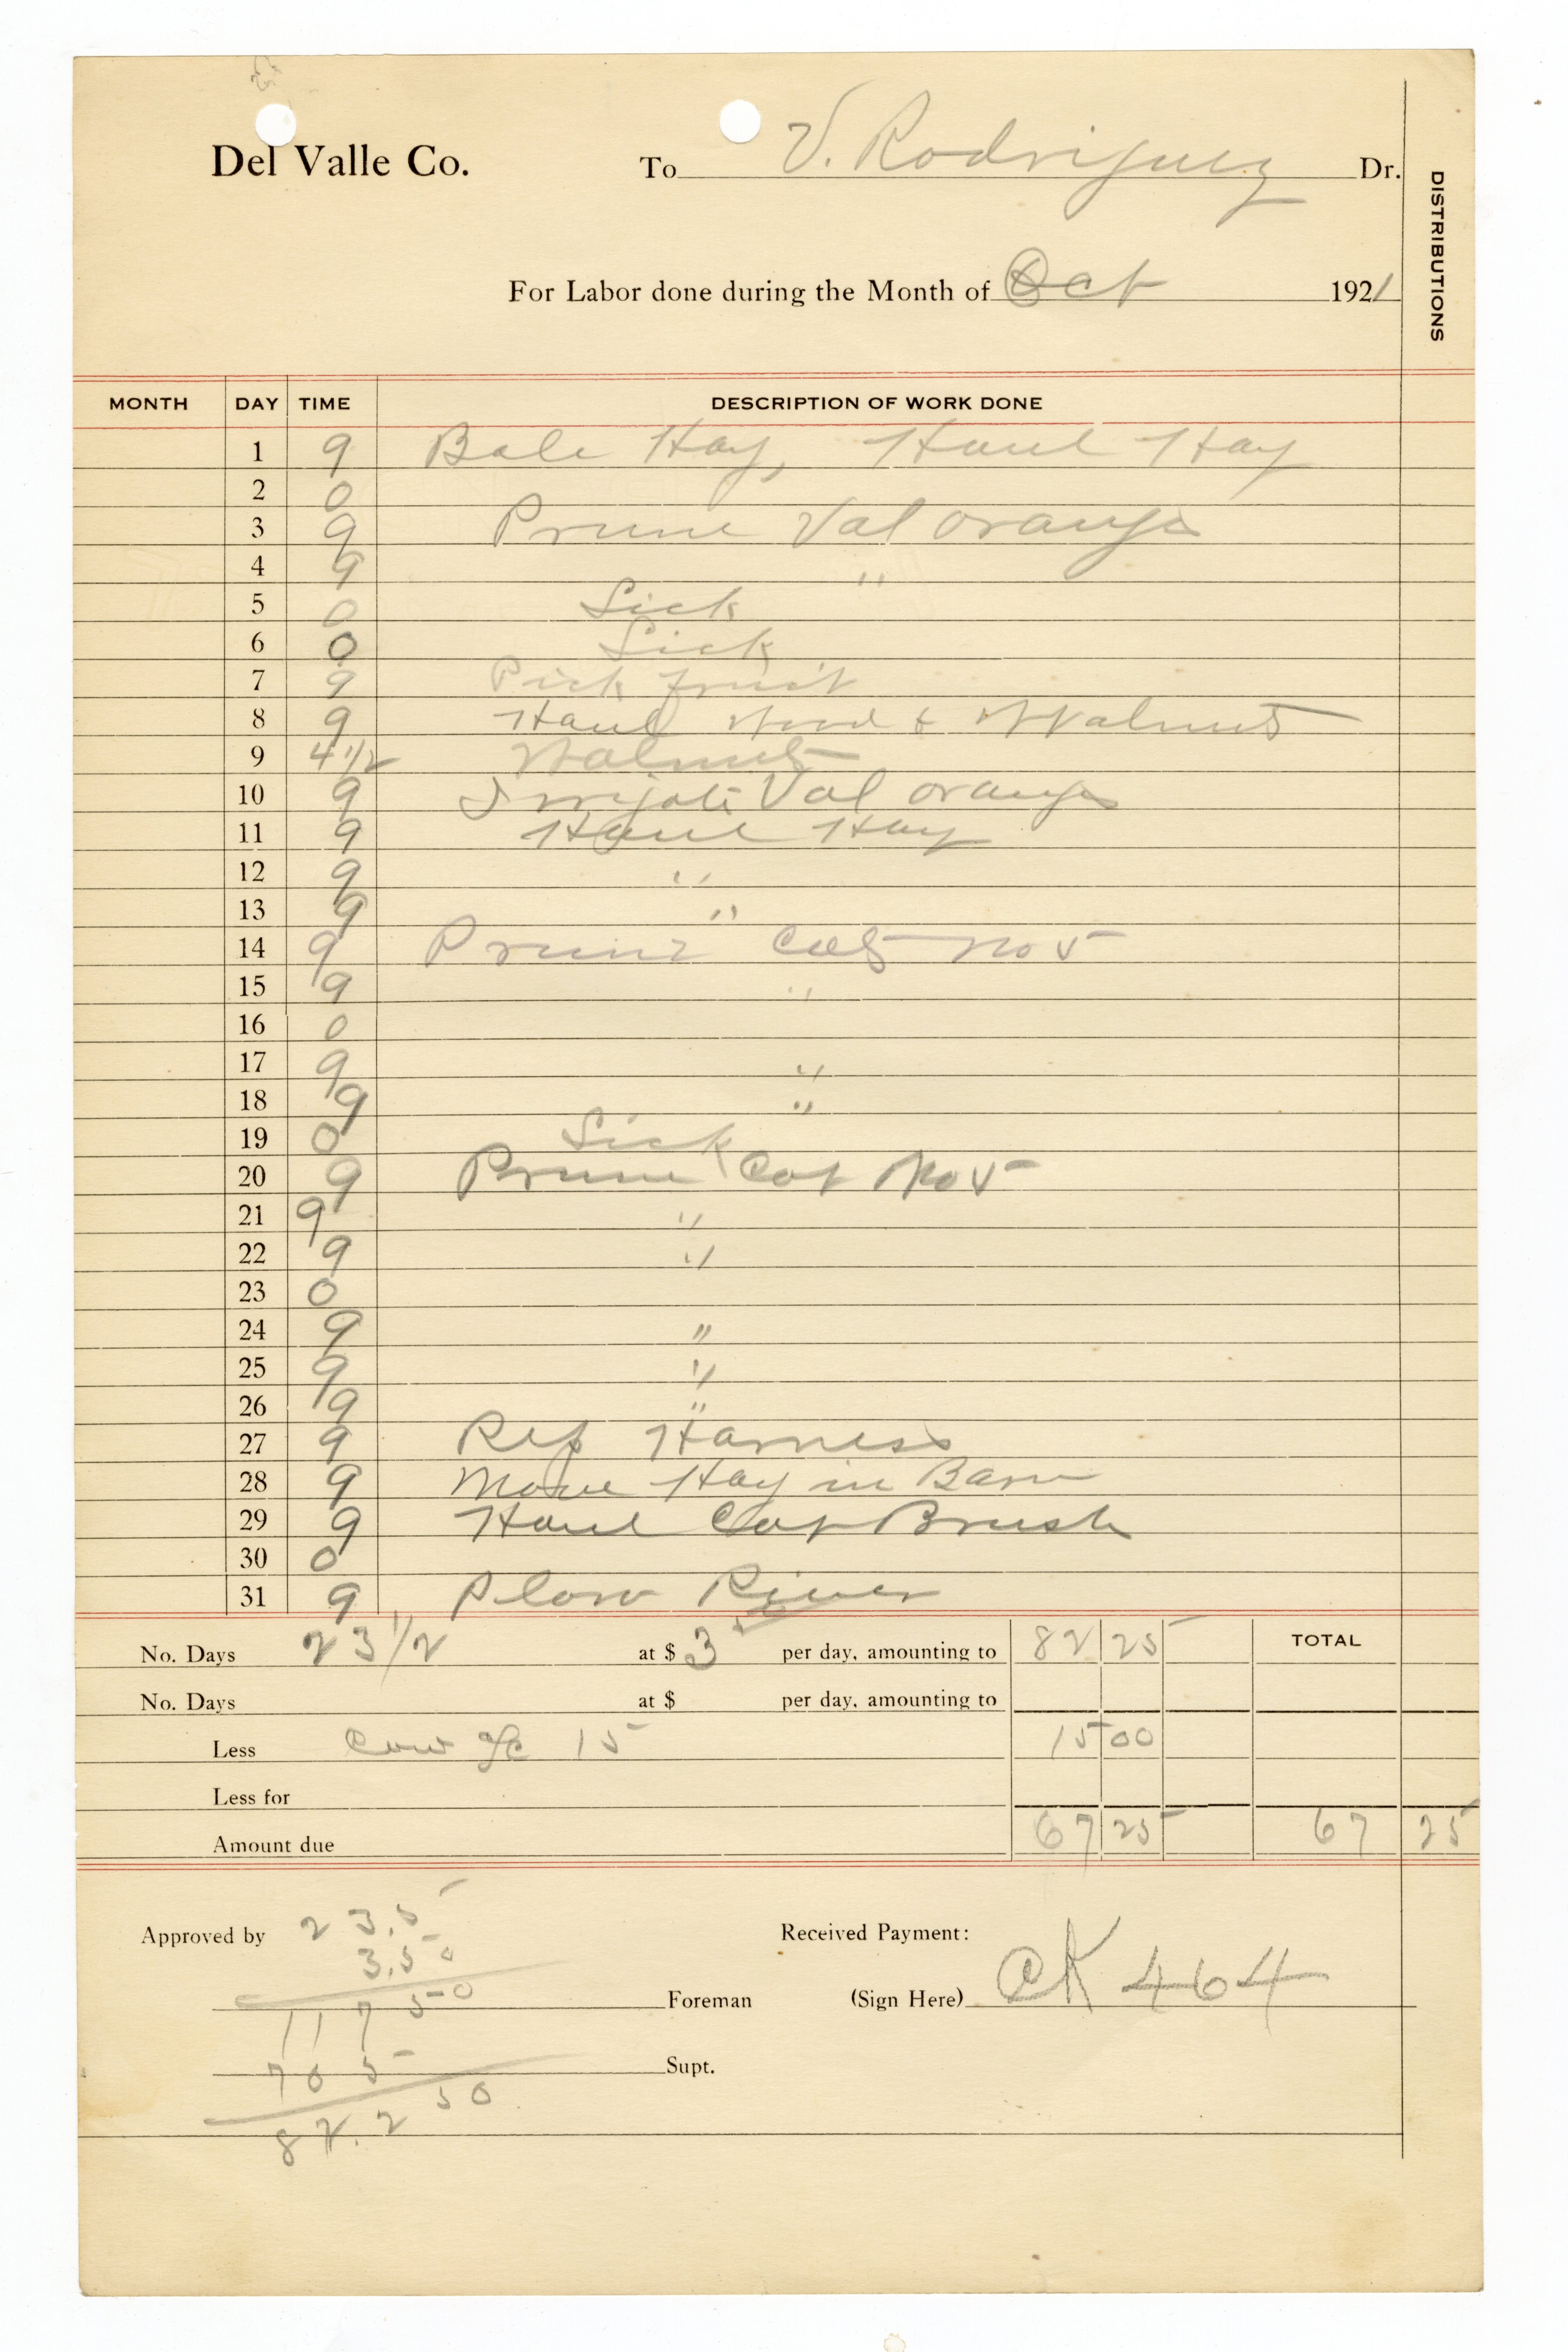 Del Valle Co. To V. Rodriguez Dr.
DISTRIBUTIONS
For Labor done during the Month of Oct 1921
MONTH DAY TIME DESCRIPTION OF WORK DONE
1 9 Bale Hay, Haul Hay
2 0
3 9 Prune Val oranges
4 9 "
5 0 Sick
6 0 Sick
7 9 Pick fruit
8 9 Haul Wood & Walnuts
9 4 1/2 Walnuts
10 9 Irrigate Val oranges
11 9 Haul Hay
12 9 "
13 9 "
14 9 Prune Cots No 5
15 9 "
16 0
17 9 "
18 9 "
19 0 Sick
20 9 Prune Cot No 5
21 9 "
22 9 "
23 0
24 9 "
25 9 "
26 9 "
27 9 Rep Harness
28 9 Move Hay in Barn
29 9 Haul Cot Brush
30 0
31 9 Plow River
No. Days 23 1/2 at $ 3 50 per day, amounting to 82 25 TOTAL
No. Days at $ per day, amounting to
Less Cow a/c 15 15 00
Less for
Amount due 67 25 67 25
Approved by 23.5 Received Payment:
3.50
11 7 50 Foreman (Sign Here) CK 464
70 5 Supt.
82.250